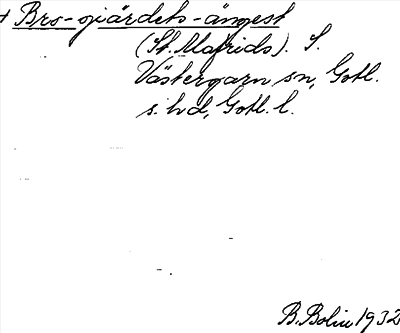 + Bro-gjärdets-ängest
(St. Mafrids). S.
Västergarn sn, Gotl.
s. hd, Gotl. l.
B. Bolin 1932